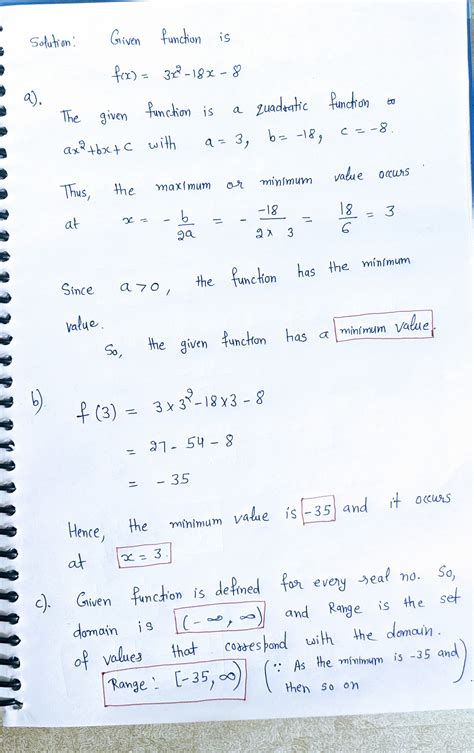 Solution: Given function is
f(x) = 3x² - 18x - 8
a). The given function is a quadratic function
ax² + bx + c with a = 3, b = -18, c = -8.
Thus, the maximum or minimum value occurs
at x = - b/2a = - -18/2 × 3 = 18/6 = 3
Since a > 0, the function has the minimum
value.
So, the given function has a minimum value.
b). f(3) = 3 × 3² - 18 × 3 - 8
= 27 - 54 - 8
= - 35
Hence, the minimum value is -35 and it occurs
at x = 3.
c). Given function is defined for every real no. So,
domain is (-∞, ∞) and Range is the set
of values that correspond with the domain.
Range: [-35, ∞) (∵ As the minimum is -35 and
then so on)